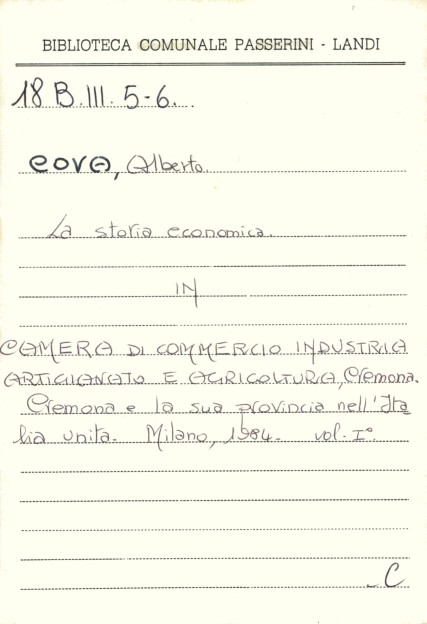 BIBLIOTECA COMUNALE PASSERINI - LANDI
18 B.III. 5-6.
COVA, Alberto.
La storia economica.
IN
CAMERA DI COMMERCIO INDUSTRIA
ARTIGIANATO E AGRICOLTURA, Cremona.
Cremona e la sua provincia nell'Ita
lia unita. Milano, 1984. vol. I°.
C